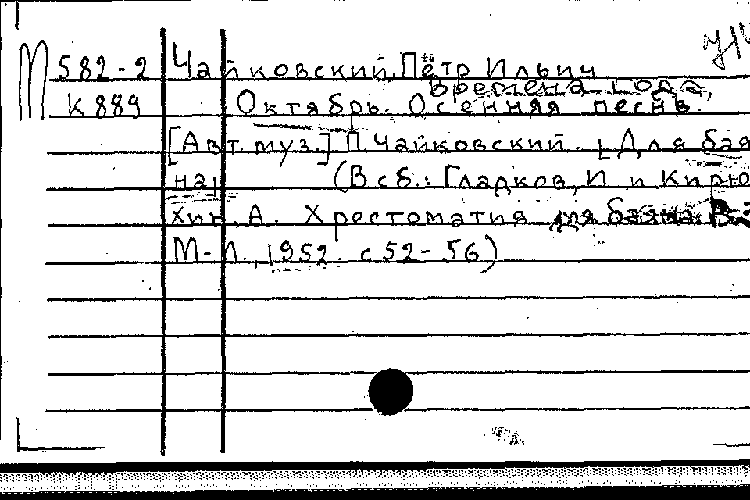 М 582-2 Чайковский, Пётр Ильич
Времена года,
К 889 Октябрь. Осенняя песнь.
[Авт. муз.] П. Чайковский. [Для бая
на] (В сб.: Гладков, И и Кирю
хин. А. Хрестоматия для баяна.
М-Л, 1952. с 52-56)